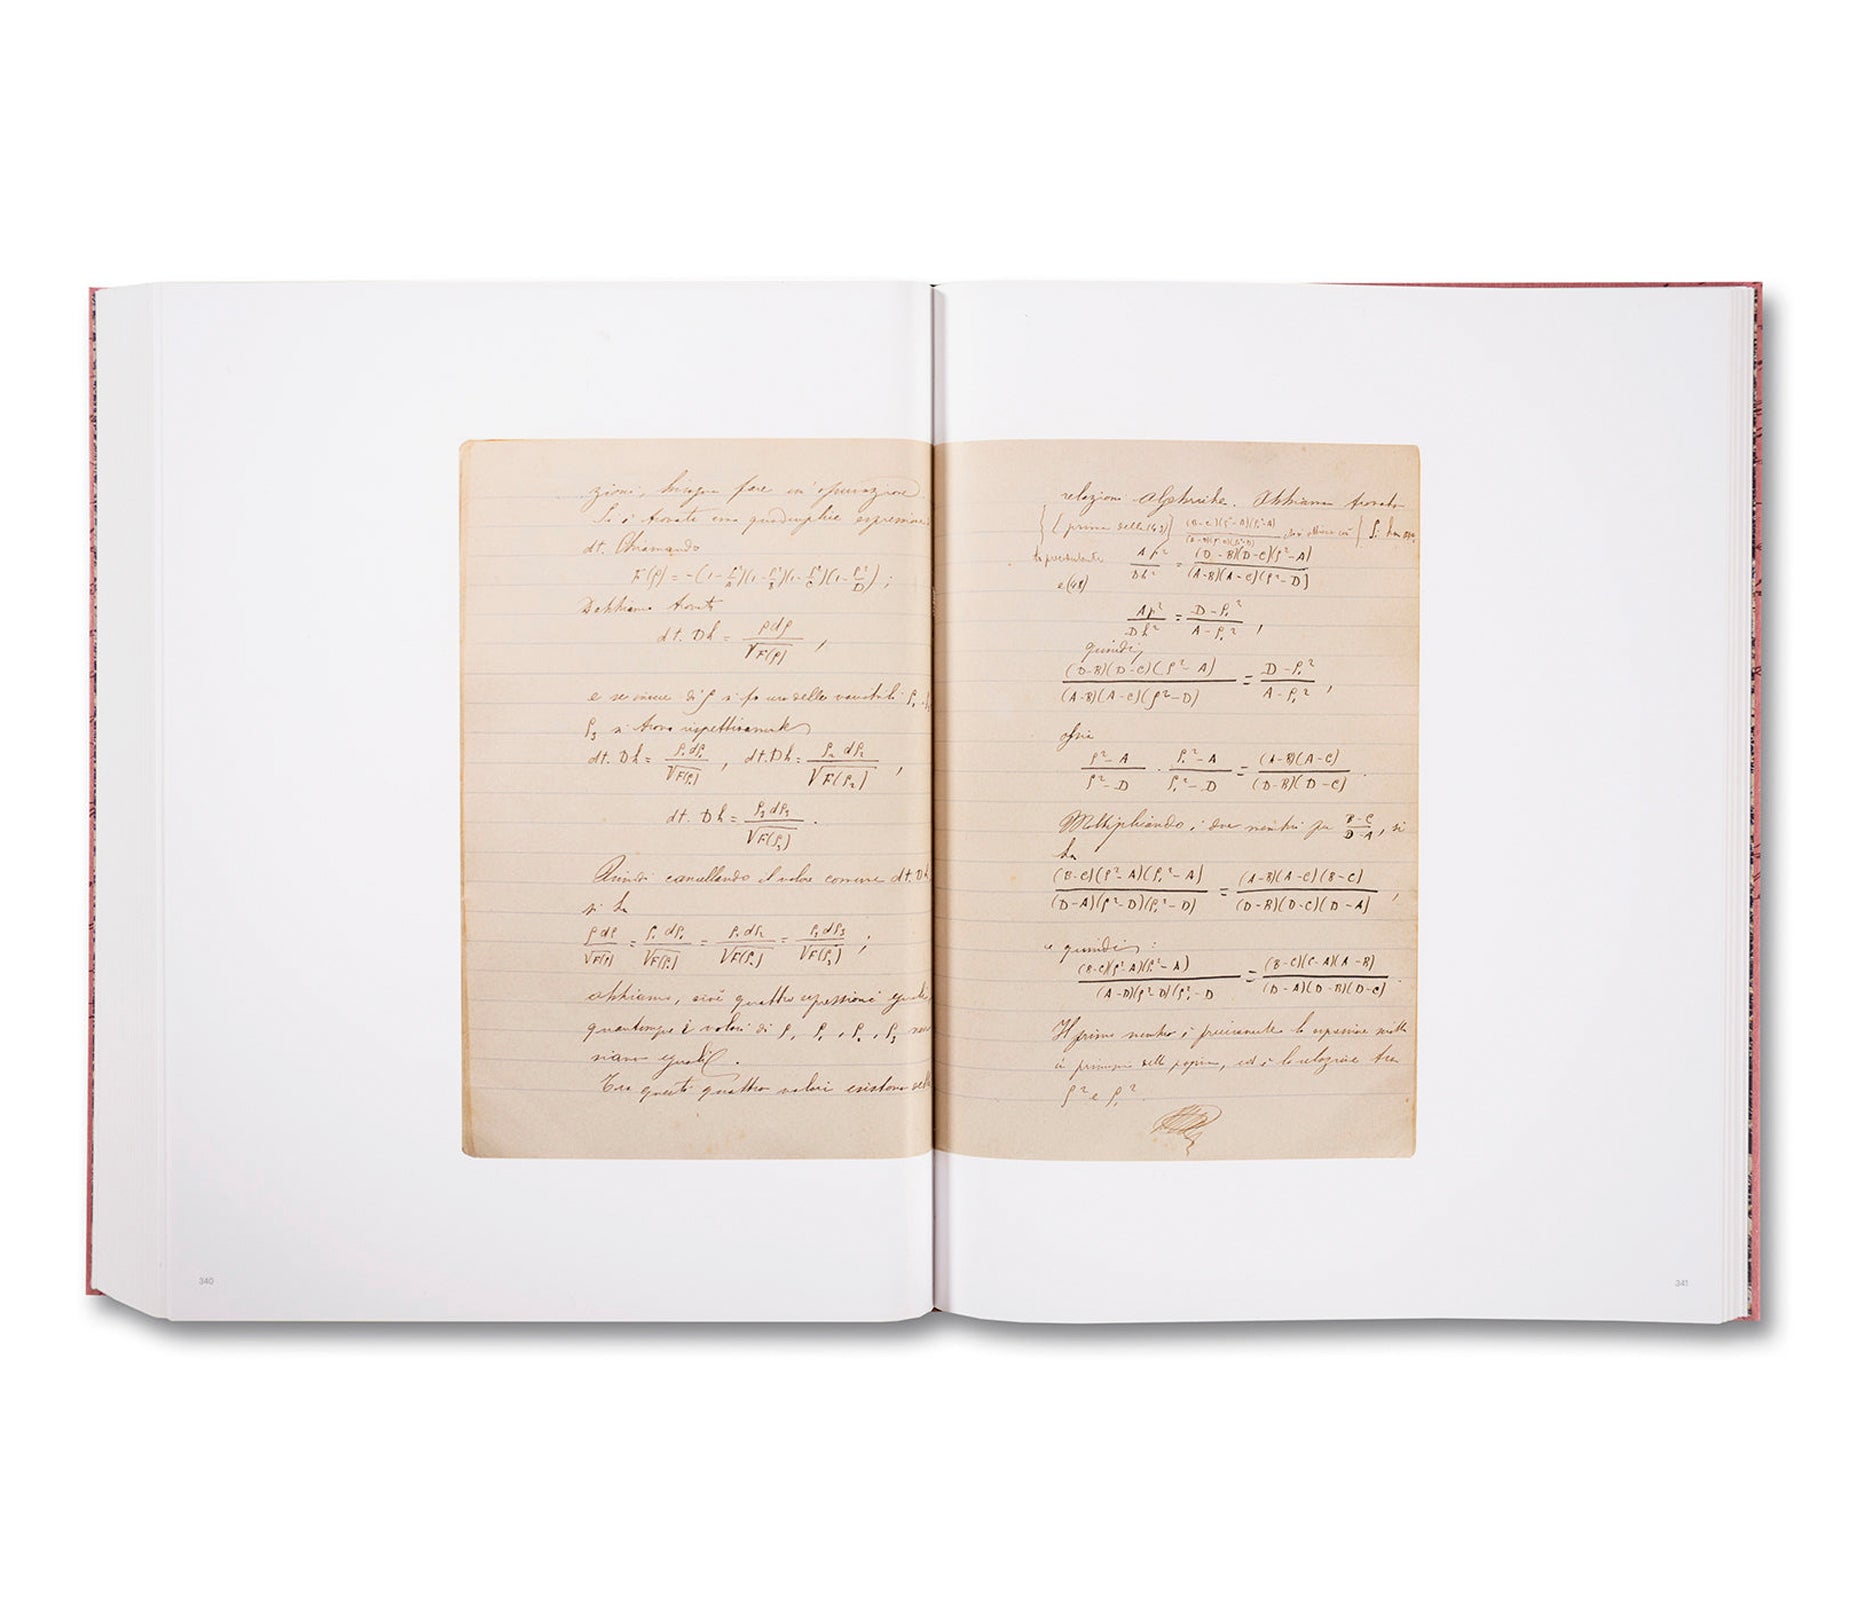 zioni, bisogna fare un'operazione.
Si è trovata una quadruplice espressione
dt. Chiamando
F(ρ) = -(1-ρ²/A)(1-ρ²/B)(1-ρ²/C)(1-ρ²/D);
Dobbiamo trovato
dt. Dh = ρdρ/√F(ρ) ,
e se invece di ρ si fa uso delle variabili ρ₁
ρ₃ si trova rispettivamente
dt. Dh = ρ₁dρ₁/√F(ρ₁) , dt. Dh = ρ₂dρ₂/√F(ρ₂) ,
dt. Dh = ρ₃dρ₃/√F(ρ₃) .
Quindi cancellando il valore comune dt. Dh
si ha
ρdρ/√F(ρ) = ρ₁dρ₁/√F(ρ₁) = ρ₂dρ₂/√F(ρ₂) = ρ₃dρ₃/√F(ρ₃) ;
abbiamo, cioè quattro espressioni eguali,
quantunque i valori di ρ, ρ₁, ρ₂, ρ₃ non
siano eguali.
Tra questi quattro valori esistono delle
340
relazioni algebriche. Abbiamo trovato
{ [prima della (43)] (B-C)(ρ²-A)(ρ₁²-A)
Ap²/Dh² = (D-B)(D-C)(ρ²-A)/(A-B)(A-C)(ρ²-D)
e (48)
Ap²/Dh² = D-ρ₁²/A-ρ₁² ,
quindi,
(D-B)(D-C)(ρ²-A)/(A-B)(A-C)(ρ²-D) = D-ρ₁²/A-ρ₁² ,
ossia
ρ²-A/ρ²-D · ρ₁²-A/ρ₁²-D = (A-B)(A-C)/(D-B)(D-C) .
Moltiplicando i due membri per B-C/D-A, si
ha
(B-C)(ρ²-A)(ρ₁²-A)/(D-A)(ρ²-D)(ρ₁²-D) = (A-B)(A-C)(B-C)/(D-B)(D-C)(D-A) ,
e quindi:
(B-C)(ρ²-A)(ρ₁²-A)/(A-D)(ρ²-D)(ρ₁²-D = (B-C)(C-A)(A-B)/(D-A)(D-B)(D-C) .
Il primo membro è precisamente la espressione
in principio della pagina, ed è la relazione tra
ρ² e ρ₁².
341